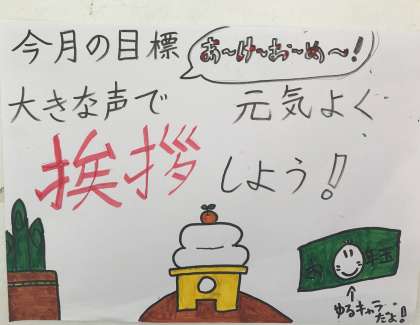 今月の目標
あ~け~お~め~!
大きな声で 元気よく
挨拶しよう!
お年玉
ゆるキャラ
だよ!